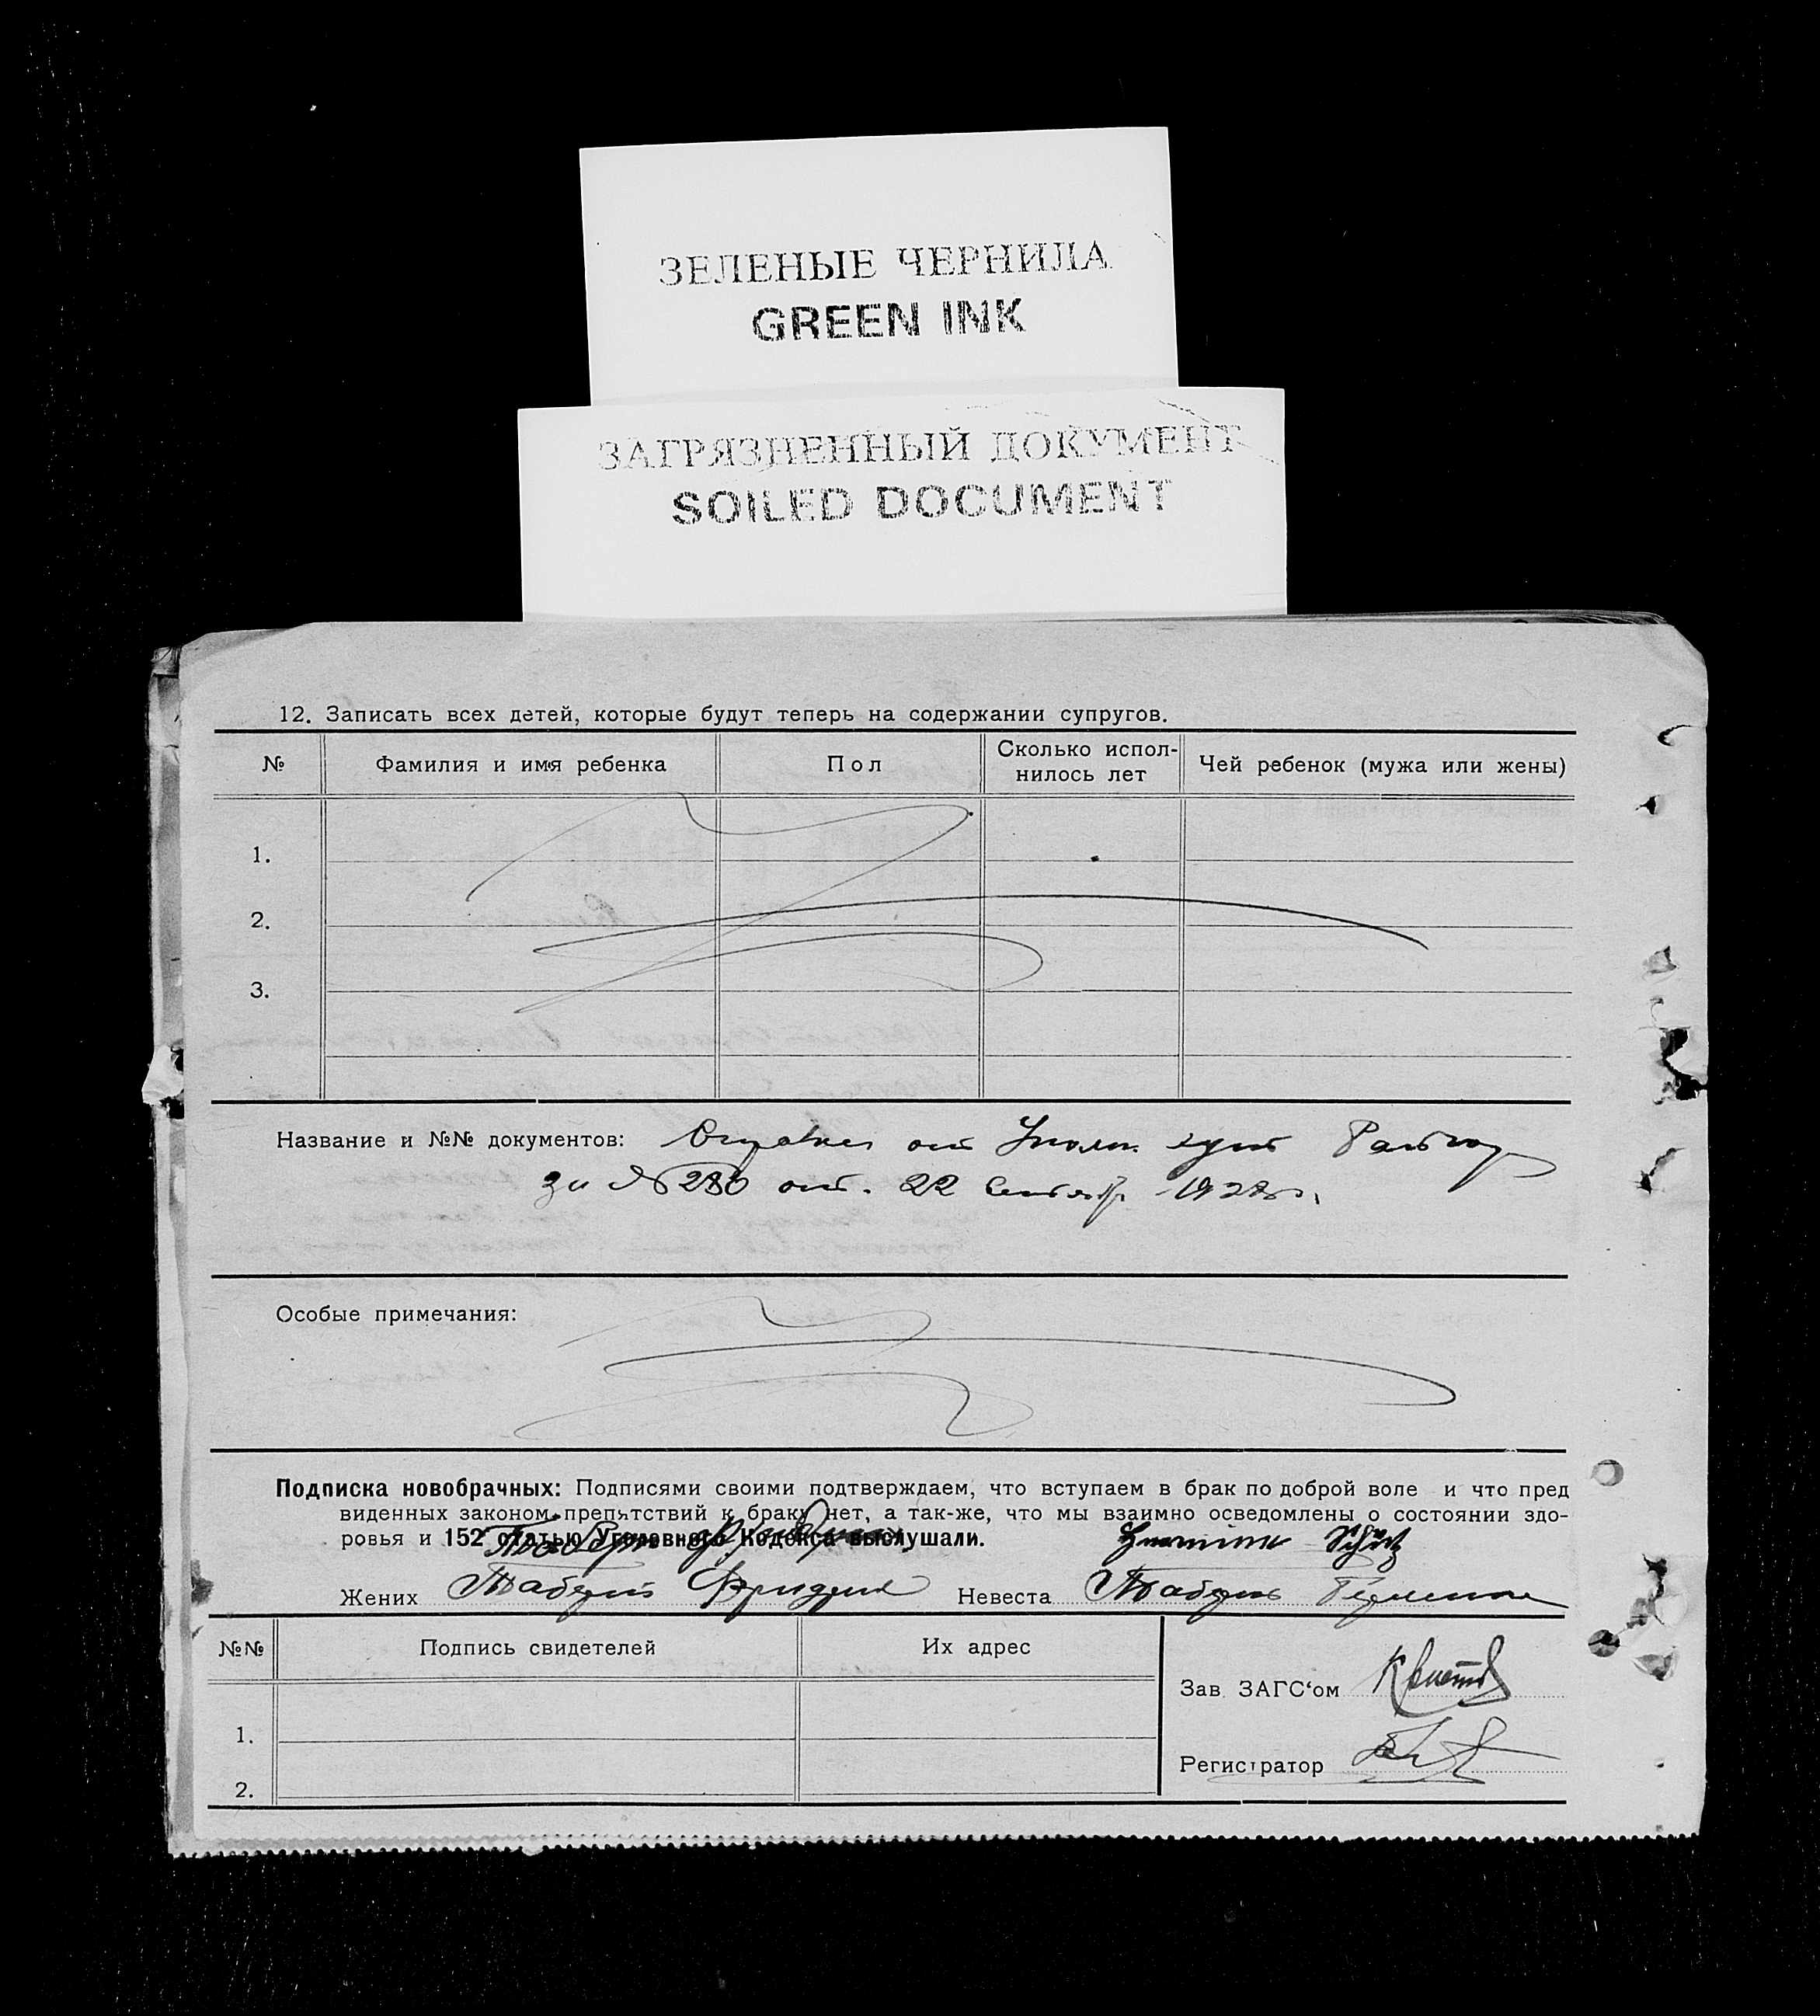 ЗЕЛЕНЫЕ ЧЕРНИЛА
GREEN INK
ЗАГРЯЗНЕННЫЙ ДОКУМЕНТ
SOILED DOCUMENT
12. Записать всех детей, которые будут теперь на содержании супругов.
№ Фамилия и имя ребенка Пол Сколько испол-нилось лет Чей ребенок (мужа или жены)
1.
2.
3.
Название и №№ документов: от
за № 230 от. 22 Сентябр 1928г.
Особые примечания:
Подписка новобрачных: Подписями своими подтверждаем, что вступаем в брак по доброй воле и что пред
виденных законом препятствий к браку нет, а так-же, что мы взаимно осведомлены о состоянии здо-
ровья и 152 статью Уголовного Кодекса выслушали.
Schütz
Жених Фридрих Невеста
№№ Подпись свидетелей Их адрес
Зав. ЗАГС‘ом
1.
Регистратор
2.